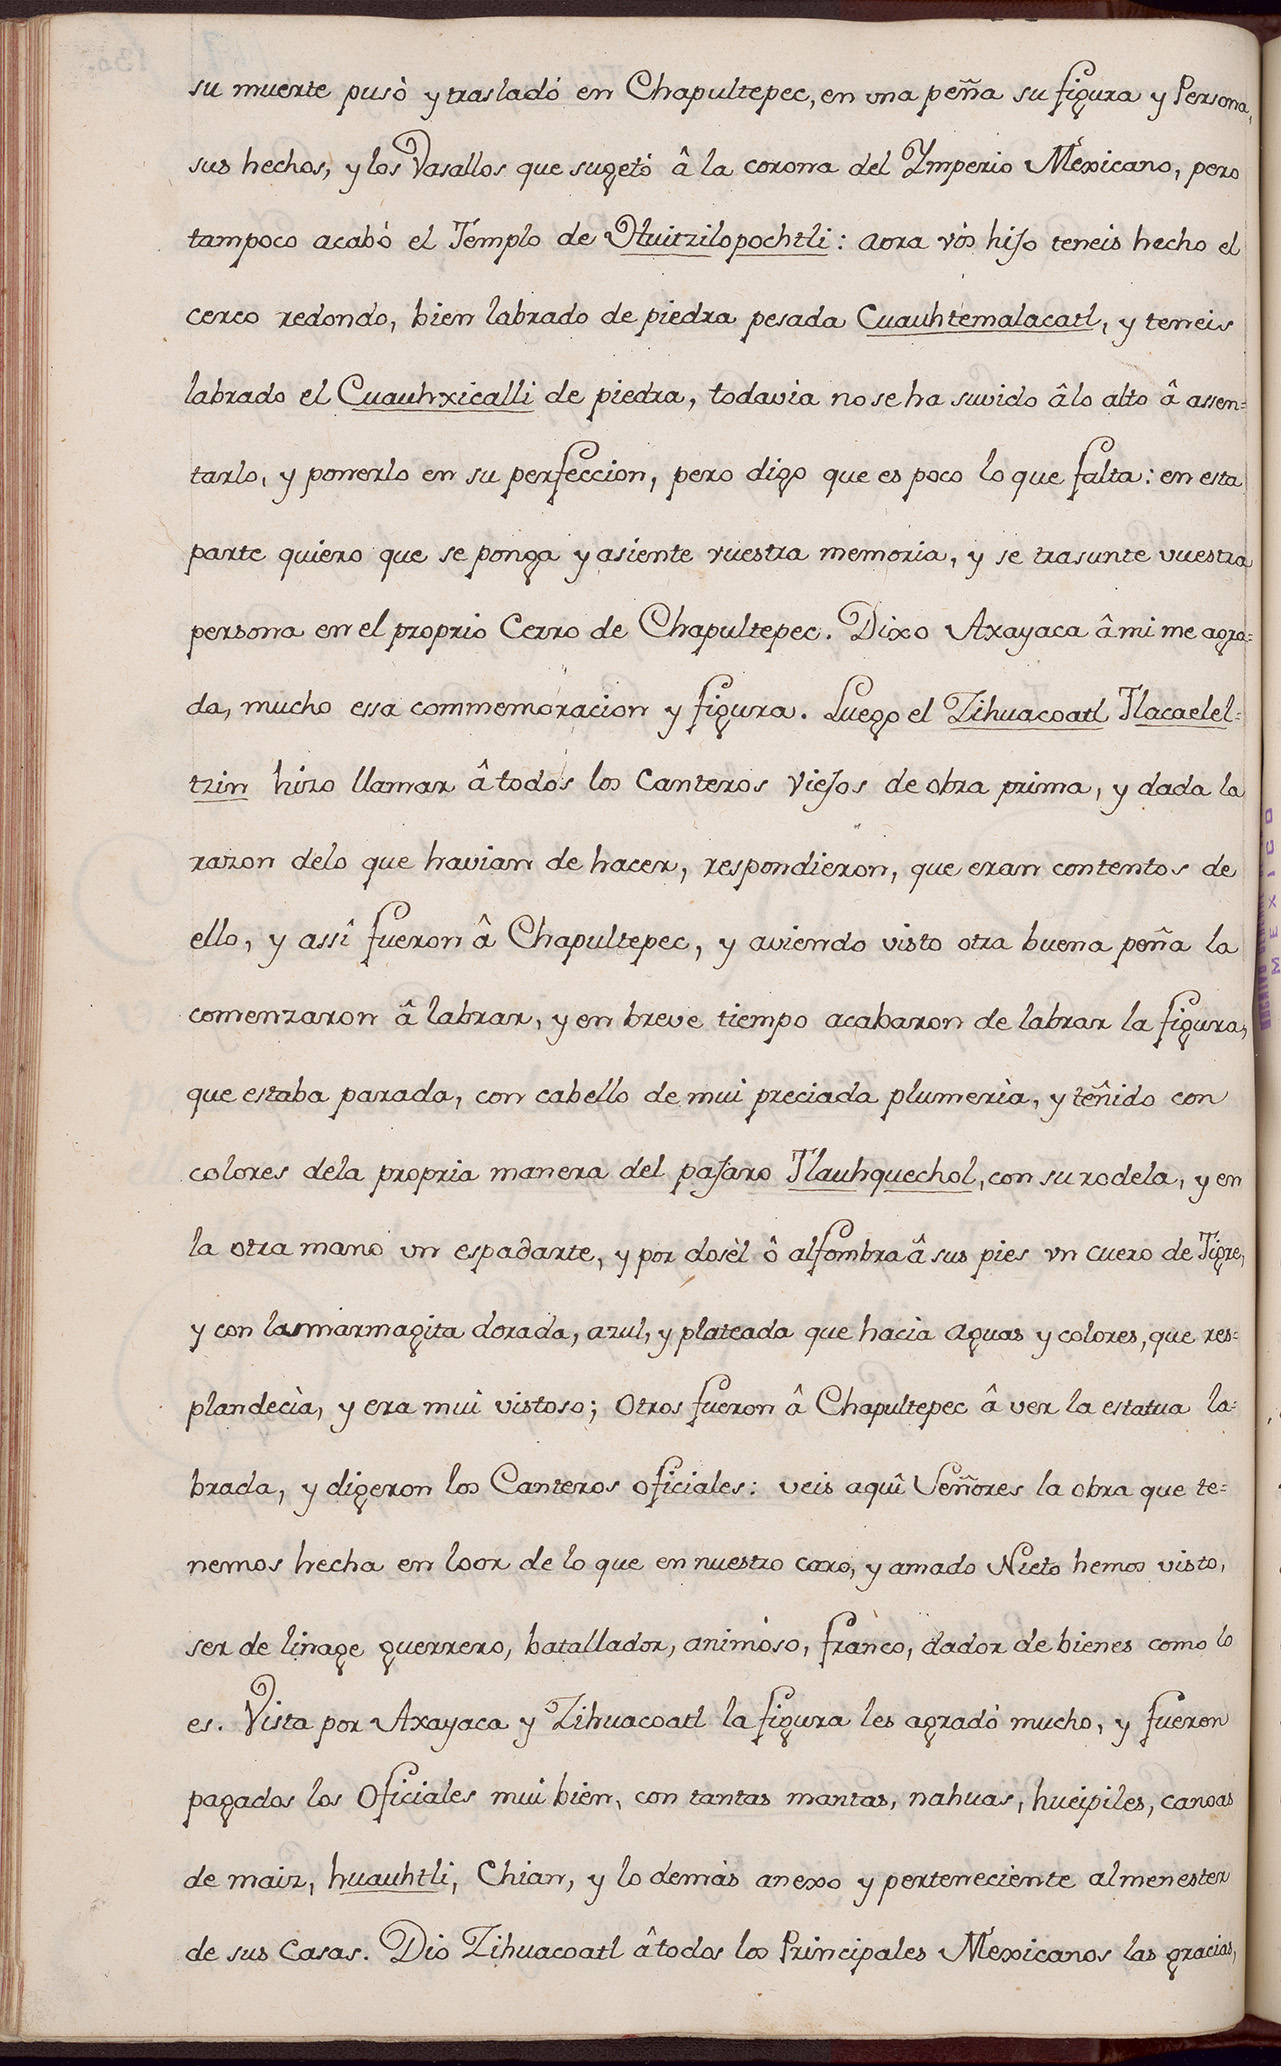 su muerte pusò y trasladó en Chapultepec, en una peña su figura y Persona,
sus hechos, y los Vasallos que sugetó â la corona del Ymperio Mexicano, pero
tampoco acabó el Templo de Huitzilopochtli: aora vòs hijo teneis hecho el
cerco redondo, bien labrado de piedra pesada Cuauhtemalacatl, y teneis
labrado el Cuauhxicalli de piedra, todavia no se ha suvido â lo alto â assen=
tarlo, y ponerlo en su perfeccion, pero digo que es poco lo que falta: en esta
parte quiero que se ponga y asiente vuestra memoria, y se trasunte vuestra
persona en el proprio Cerro de Chapultepec. Dixo Axayaca â mi me agra=
da, mucho essa commemoracion y figura. Luego el Zihuacoatl Tlacaelel=
tzin hizo llamar â todos los Canteros viejos de obra prima, y dada la
razon delo que havian de hacer, respondieron, que eran contentos de
ello, y assî fueron â Chapultepec, y aviendo visto otra buena peña la
comenzaron â labrar, y en breve tiempo acabaron de labrar la figura,
que estaba parada, con cabello de mui preciada plumerìa, y teñido con
colores dela propria manera del pajaro Tlauhquechol, con su rodela, y en
la otra mano un espadarte, y por dosèl ô alfombra â sus pies vn cuero de Tigre,
y con la marmagita dorada, azul, y plateada que hacia aguas y colores, que res=
plandecìa, y era mui vistoso; Otros fueron â Chapultepec â ver la estatua la=
brada, y digeron los Canteros oficiales: veis aquî Señores la obra que te=
nemos hecha en loor de lo que en nuestro caro, y amado Nieto hemos visto,
ser de linage guerrero, batallador, animoso, franco, dador de bienes como lo
es. Vista por Axayaca y Zihuacoatl la figura les agradó mucho, y fueron
pagados los Oficiales mui bien, con tantas mantas, nahuas, hueipiles, canoas
de maiz, huauhtli, Chian, y lo demàs anexo y perteneciente al menester
de sus Casas. Dio Zihuacoatl â todos los Principales Mexicanos las gracias,
MEXICO